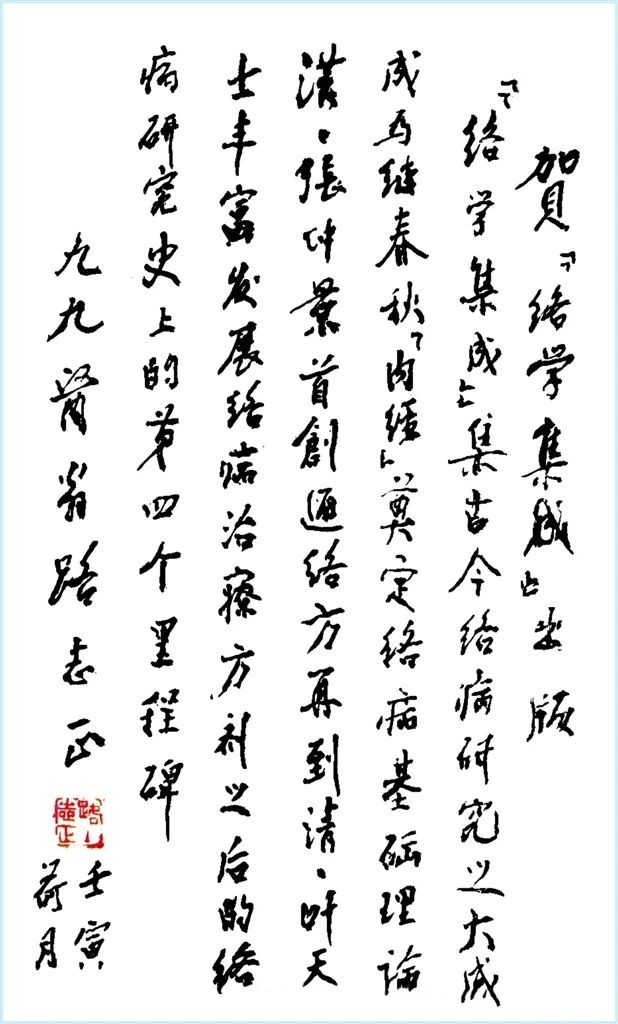 賀『络学集成』出版
『络学集成』集古今络病研究之大成
成为继春秋『内经』奠定络病基础理論
漢、張仲景首創通络方再到清、叶天
士丰富发展络病治療方剂之后的络
病研究史上的第四个里程碑
九九醫翁路志正
壬寅
荷月